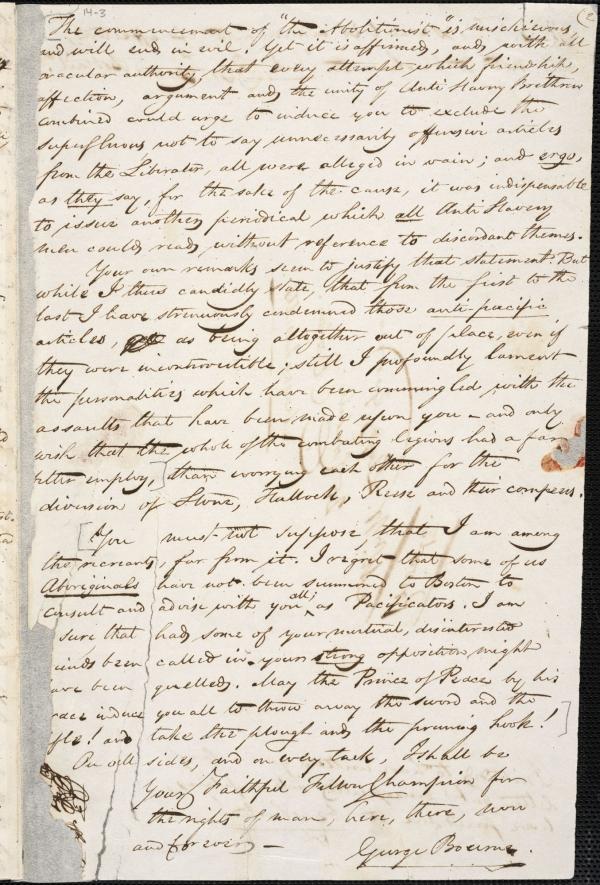 14-3
The commencement of "the Abolitionist" is mischievous
and will end in evil. Yet it is affirmed, and, with all
oracular authority, that every attempt which friendship,
affection, argument and the unity of Anti Slavery Brethren
combined could urge to induce you to exclude the
superfluous not to say unnecessarily offensive articles
from the Liberator, all were alleged in vain; and ergo,
as they say, for the sake of the cause, it was indispensable
to issue another periodical which all Anti Slavery
men could read, without reference to discordant themes.
Your own remarks seem to justify that statement. But
while I thus candidly state, that from the first to the
last I have strenuously condemned those anti-pacific
articles, as being altogether out of place, even if
they were incontrovertible; still I profoundly lament
the personalities which have been commingled with the
assaults that have been made upon you – and only
wish that the whole of the combating legions had a far
better employ, than worrying each other for the
diversion of Stone, Hallock, Reese and their compeers.
[You must not suppose, that I am among
the recreants, far from it. I regret that some of us
Aboriginals have not been summoned to Boston to
consult and advise with you all, as Pacificators. I am
sure that had some of your mutual, disinterested
iends been called in, your strong opposition might
ave been quelled. May the Prince of Peace by his
race induce you all to throw away the sword and the
fle! and take the plough and the pruning hook!]
On all sides, and on every tack, I shall be
Your Faithful Fellow Champion for
the rights of man, here, there, now
and forever –
George Bourne.